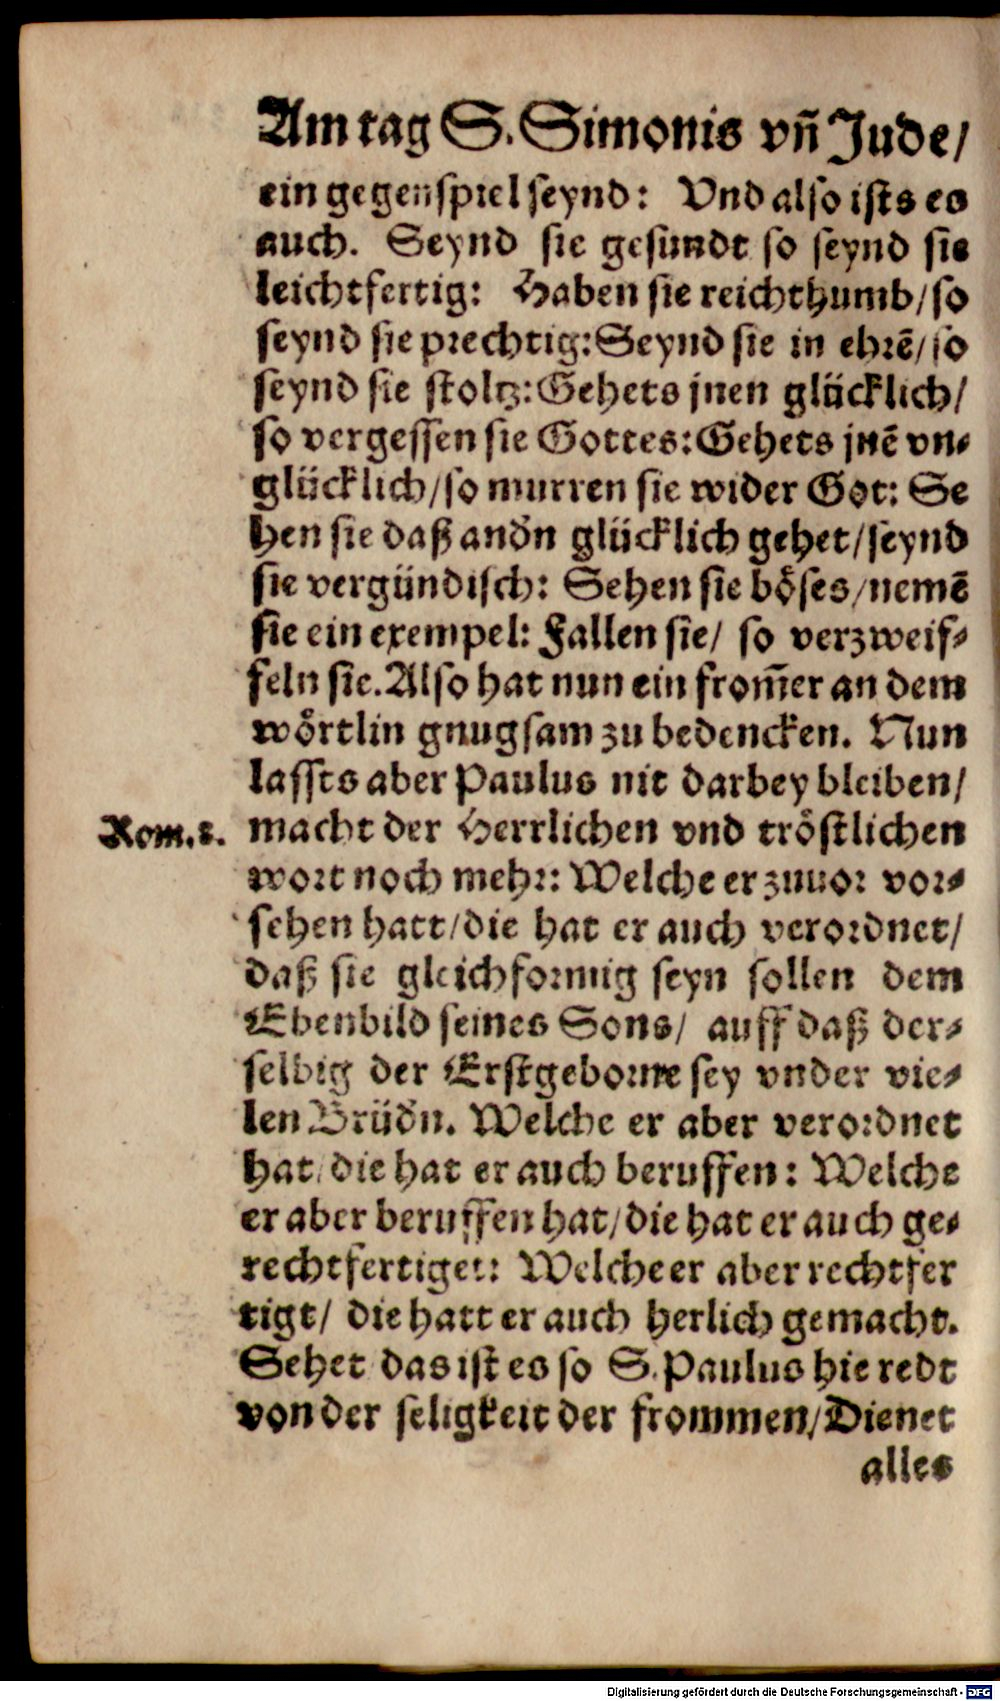 Am tag S. Simonis vñ Jude/
ein gegenspiel seynd: Vnd also ists es
auch. Seynd sie gesundt so seynd sie
leichtfertig: Haben sie reichthumb/ so
seynd sie prechtig: Seynd sie in ehrē/ so
seynd sie stoltz: Gehets jnen glücklich/
so vergessen sie Gottes: Gehets jnē vn-
glücklich/ so murren sie wider Got: Se
hen sie daß andn̄ glücklich gehet/ seynd
sie vergündisch: Sehen sie böses/ nemē
sie ein exempel: Fallen sie/ so verzweif-
feln sie. Also hat nun ein from̄er an dem
wörtlin gnugsam zu bedencken. Nun
lassts aber Paulus nit darbey bleiben/
Rom. 8. macht der Herrlichen vnd tröstlichen
wort noch mehr: Welche er zuuor vor-
sehen hatt/ die hat er auch verordnet/
daß sie gleichformig seyn sollen dem
Ebenbild seines Sons/ auff daß der-
selbig der Erstgeborne sey vnder vie-
len Brüdn̄. Welche er aber verordnet
hat/ die hat er auch beruffen: Welche
er aber beruffen hat/ die hat er auch ge-
rechtfertiget: Welche er aber rechtfer
tigt/ die hatt er auch herlich gemacht.
Sehet das ist es so S. Paulus hie redt
von der seligkeit der frommen/ Dienet
alles
Digitalisierung gefördert durch die Deutsche Forschungsgemeinschaft - DFG